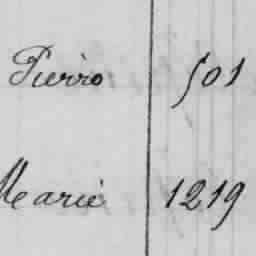 Pierro 501
Marie 1219